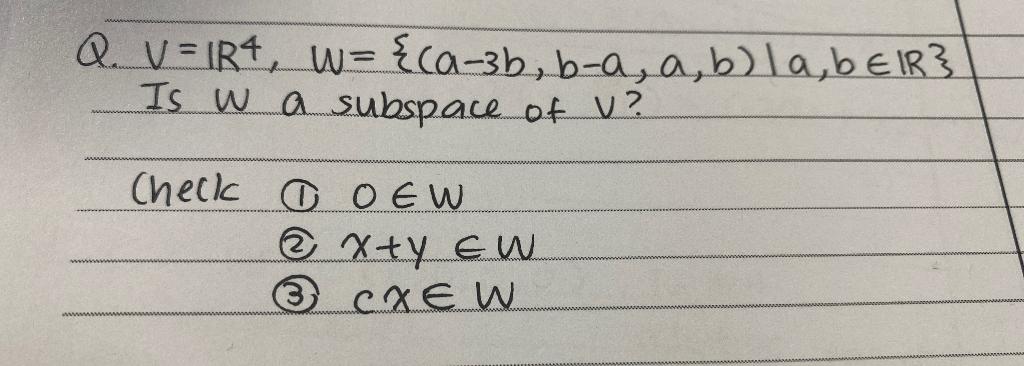 Q. V = ℝ⁴, W = {(a-3b, b-a, a, b) | a, b ∈ ℝ}
Is W a subspace of V?
Check ① 0 ∈ W
② x+y ∈ W
③ cx ∈ W